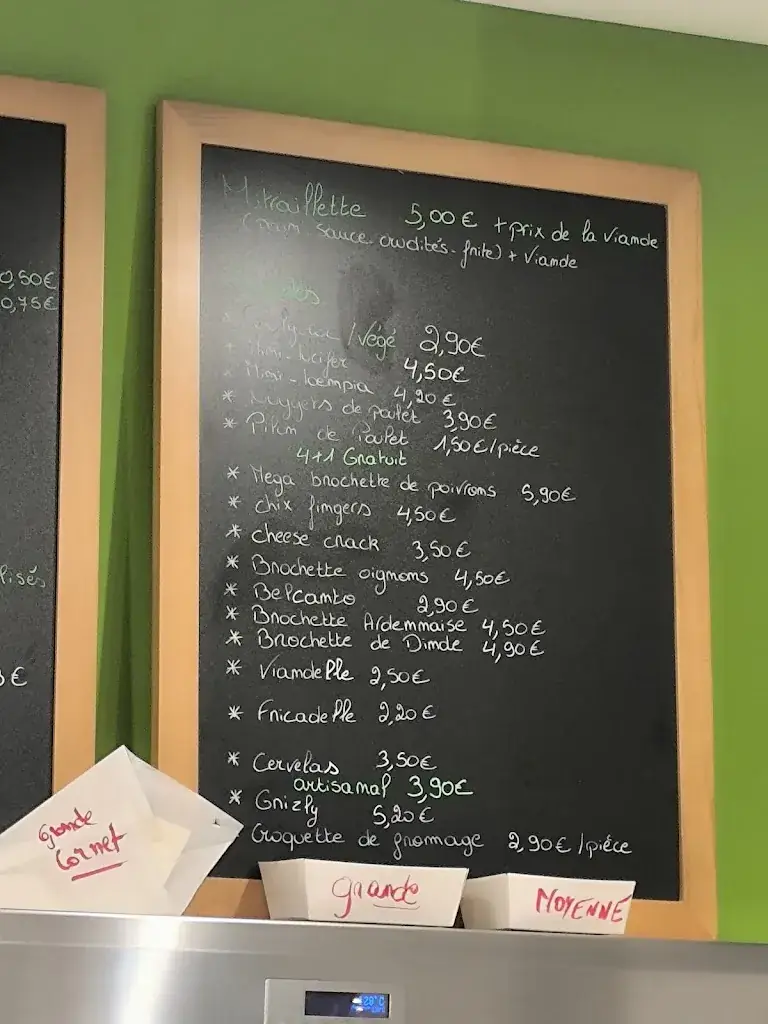 0,50€
0,75€
lisés
€
Mitraillette 5,00€ + prix de la viande
(pain sauce crudités - frite) + viande
/végé 2,90€
Mini-lucifer 4,50€
* Mini-loempia 4,20€
* Nuggets de poulet 3,90€
* Pilon de Poulet 1,50€/pièce
4+1 Gratuit
* Mega brochette de poivrons 5,90€
* chix fingers 4,50€
* cheese crack 3,50€
* Brochette oignons 4,50€
* Belcanto 2,90€
* Brochette Ardennaise 4,50€
* Brochette de Dinde 4,90€
* Viandelle 2,50€
* Fricadelle 2,20€
* Cervelas 3,50€
artisanal 3,90€
* Grizly 5,20€
Croquette de fromage 2,90€/pièce
Grande
Cornet
grande
MOYENNE